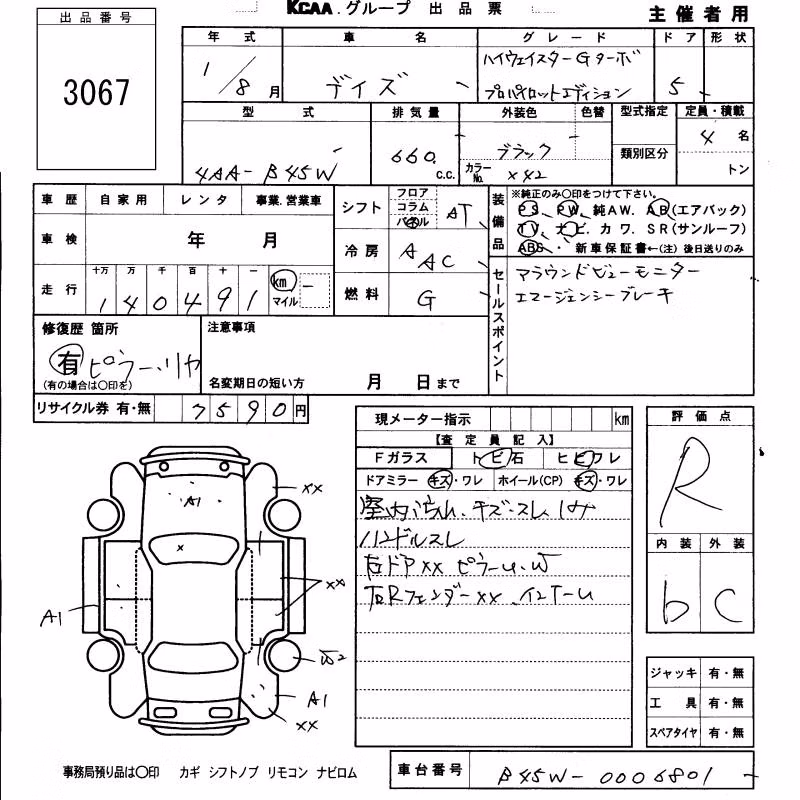 KCAA.グループ 出品票
主催者用
出品番号
3067
年式 車名 グレード ドア 形状
1/8月 デイズ ハイウェイスターGターボ
プロパイロットエディション 5 -
型式 排気量 外装色 色替 型式指定 定員・積載
4AA-B45W 660 c.c. ブラック 類別区分 4名
カラーNo. X42 トン
車歴 自家用 レンタ 事業.営業車
車検 年 月
十万 万 千 百 十 一
走行 1 4 0 4 9 1 km マイル -
シフト フロア コラム パネル AT
冷房 A AC
燃料 G
装備品
※純正のみ〇印をつけて下さい。
PS、PW、純AW. AB(エアバック)
TV、ナビ. カワ. SR(サンルーフ)
ABS・ 新車保証書←(注)後日送りのみ
セールスポイント
アラウンドビューモニター
エマージェンシーブレーキ
修復歴 箇所
有 ピラー、リヤ
(有の場合は〇印を)
注意事項
名変期日の短い方 月 日まで
リサイクル券 有・無 7590円
現メーター指示 km
【査定員記入】
Fガラス トビ石 ヒビワレ
ドアミラー キズ・ワレ ホイール(CP) キズ・ワレ
室内汚れ、キズ・スレ、しみ
ハンドルスレ
右ドアXX ピラーU、W
右RフェンダーXX、インナーU
評価点
R
内装 外装
b C
A1
XX
XX
A1
W2
A1
XX
ジャッキ 有・無
工具 有・無
スペアタイヤ 有・無
事務局預り品は〇印 カギ シフトノブ リモコン ナビロム
車台番号 B45W-0006801